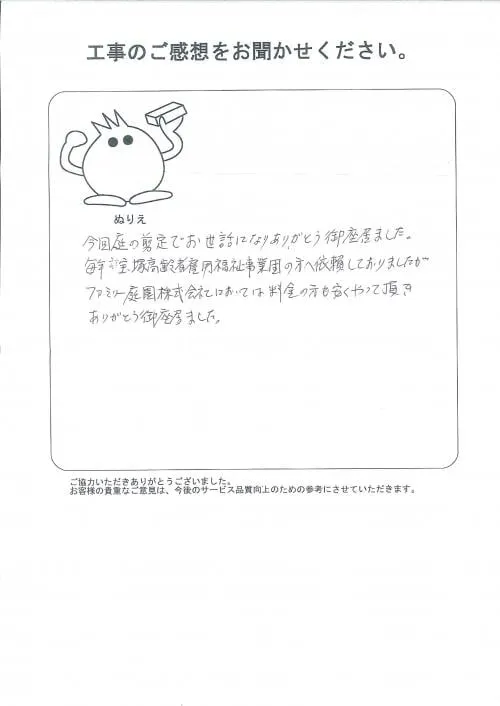 工事のご感想をお聞かせください。
ぬりえ
今回庭の剪定でお世話になりありがとう御座居ました。
毎年宝塚高齢者雇用福祉事業団の方へ依頼しておりましたが
ファミリー庭園株式会社においては料金の方も安くやって頂き
ありがとう御座居ました。
ご協力いただきありがとうございました。
お客様の貴重なご意見は、今後のサービス品質向上のための参考にさせていただきます。